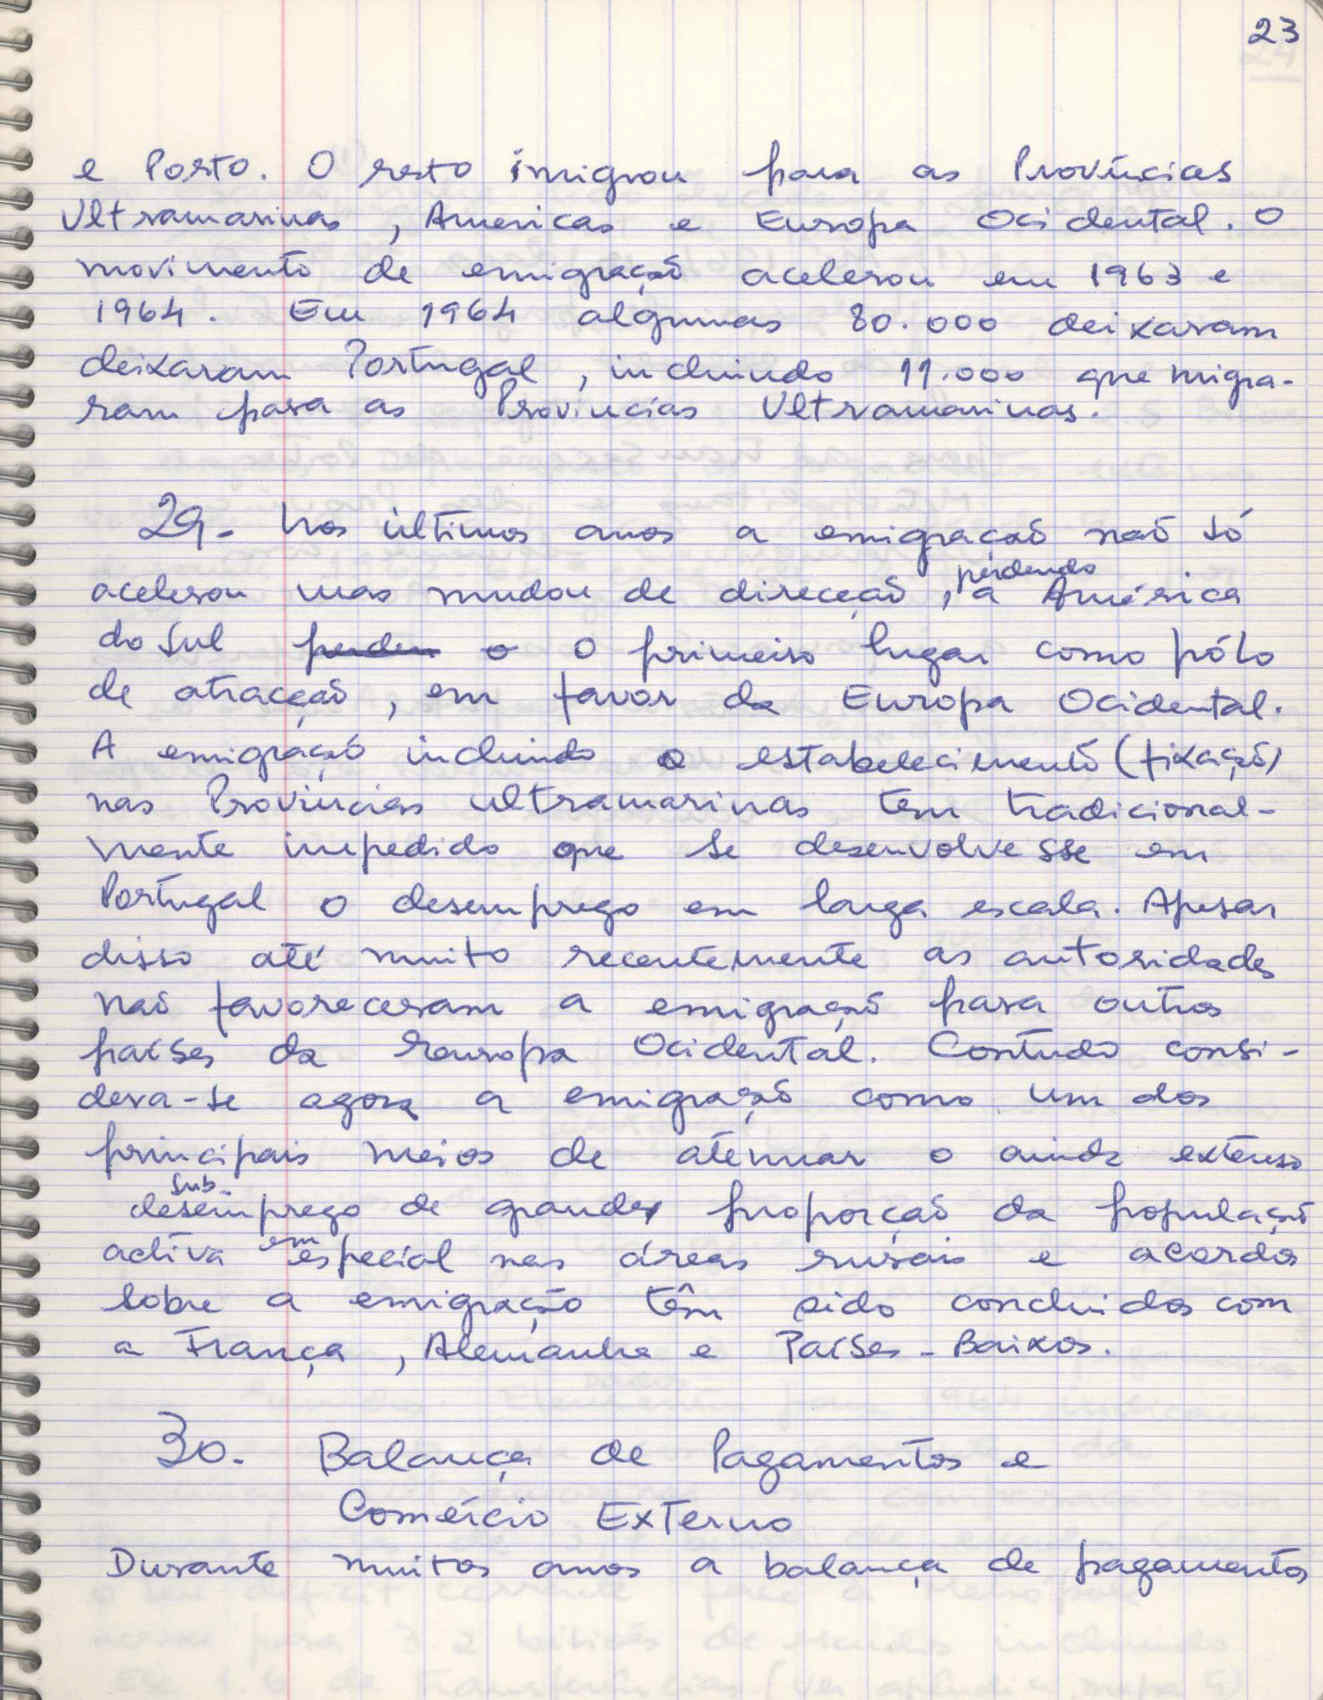 23
e Porto. O resto imigrou para as Províncias
Ultramarinas, Americas e Europa Ocidental. O
movimento de emigração acelerou em 1963 e
1964. Em 1964 algumas 80.000 deixaram
deixaram Portugal, incluindo 11.000 que migra-
ram para as Provincias Ultramarinas.
29. Nos últimos anos a emigração não só
acelerou mas mudou de direcção, perdendo a América
do Sul perdeu o o primeiro lugar como pólo
de atracção, em favor da Europa Ocidental.
A emigração incluindo o estabelecimento (fixação)
nas Províncias ultramarinas tem tradicional-
mente impedido que se desenvolvesse em
Portugal o desemprego em larga escala. Apesar
disso até muito recentemente as autoridades
não favoreceram a emigração para outros
países da Europa Ocidental. Contudo consi-
dera-se agora a emigração como um dos
principais meios de atenuar o ainda extenso
sub-
desemprego de grande proporção da população
activa em especial nas áreas rurais e acordos
sobre a emigração têm sido concluidos com
a França, Alemanha e Países-Baixos.
30. Balança de Pagamentos e
Comércio Externo
Durante muitos anos a balança de pagamentos